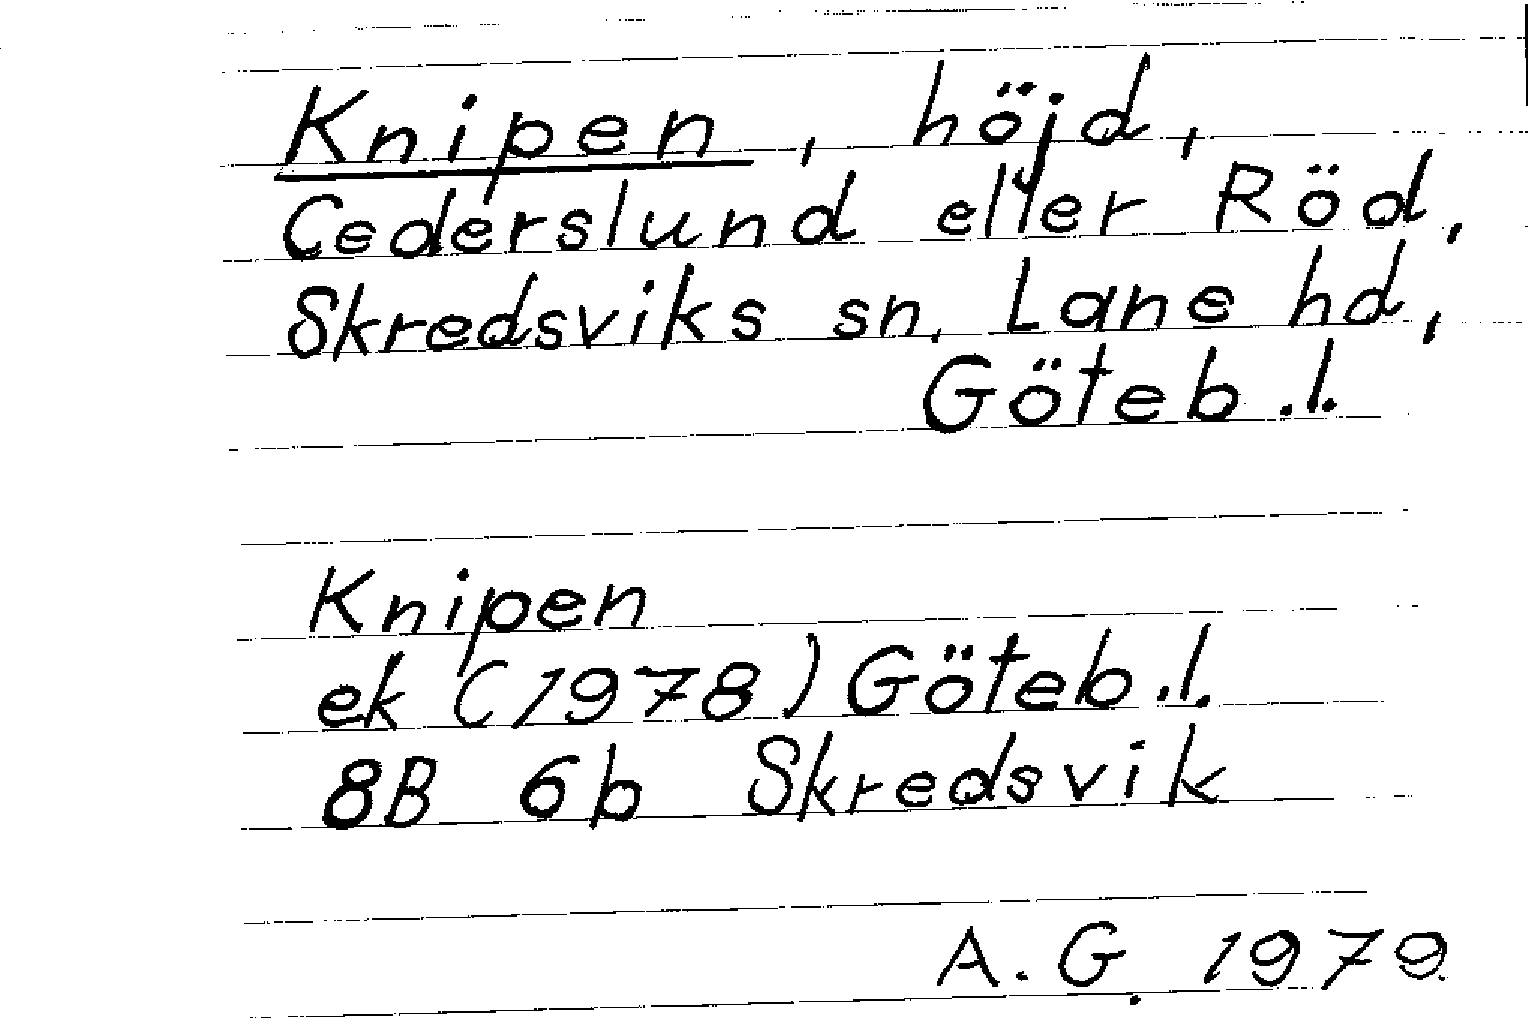 Knipen, höjd,
Cederslund eller Röd,
Skredsviks sn. Lane hd,
Göteb.l.
Knipen
ek (1978) Göteb.l.
8B 6b Skredsvik
A.G. 1979